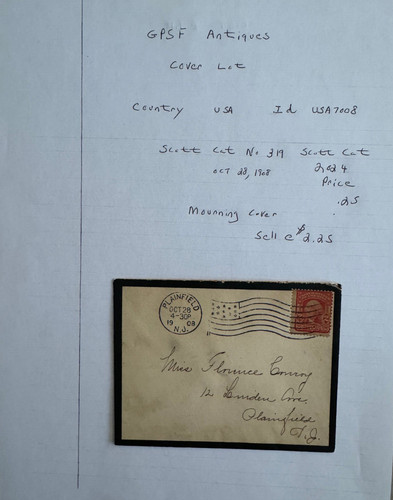 GPSF Antiques
Cover Lot
Country USA Id USA7008
Scott Cat No 319 Scott Cat
OCT 28, 1908 2024
Price
.25
Mourning Cover
Sell @ $2.25
PLAINFIELD
OCT 28
4-30P
19 08
N.J.
Miss Florence Conroy
12 Linden Ave.
Plainfield
N.J.